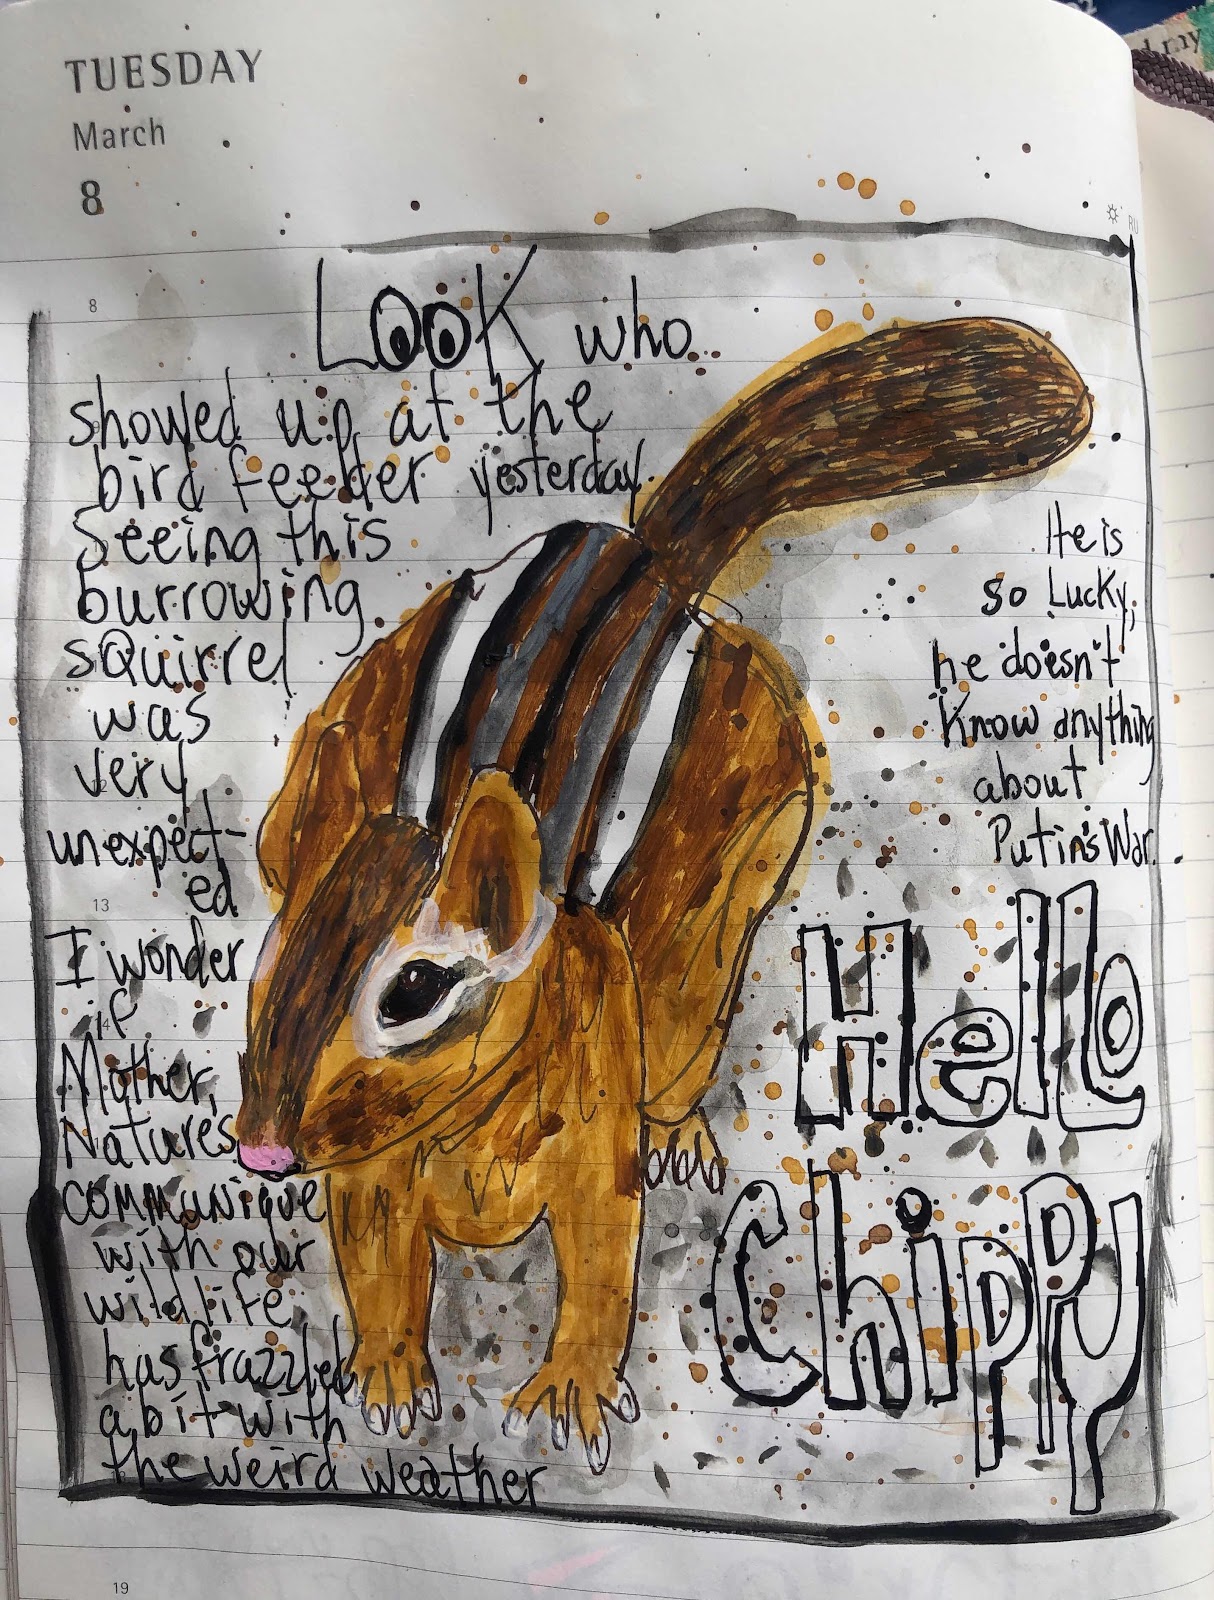 TUESDAY
March
8
8
LOOK who
showed up at the
bird feeder yesterday.
Seeing this
burrowing
squirrel
was
very
unexpect-
ed
13
I wonder
if
Mother
Natures
communique
with our
wildlife
has frazzled
a bit with
the weird weather
19
He is
so Lucky,
he doesn't
Know anything
about
Putin's War.
Hello
Chippy
RU
my